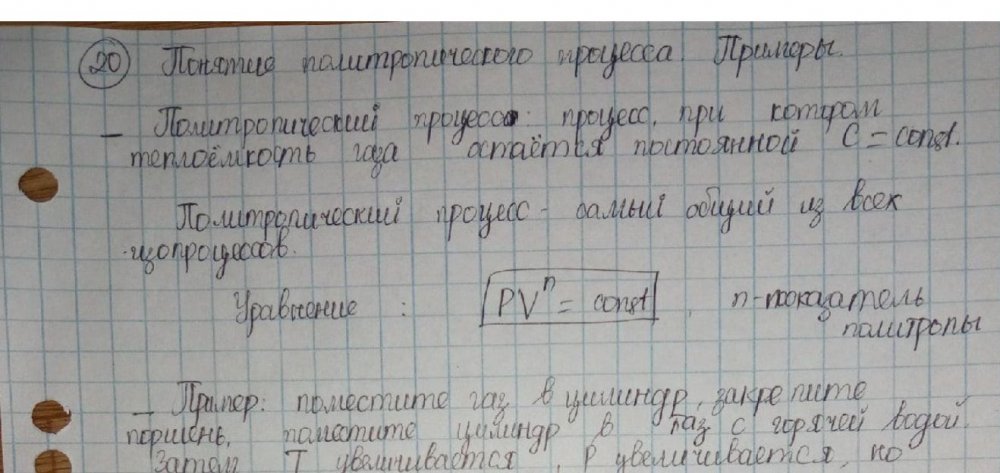 20 Понятие политропического процесса. Примеры.
– Политропический процесс: процесс, при котором
теплоёмкость газа остаётся постоянной C = const.
Политропический процесс - самый общий из всех
изопроцессов.
Уравнение : PVⁿ = const , n-показатель
политропы
– Пример: поместите газ в цилиндр, закрепите
поршень, поместите цилиндр в таз с горячей водой.
Затем T увеличивается, P увеличивается, но